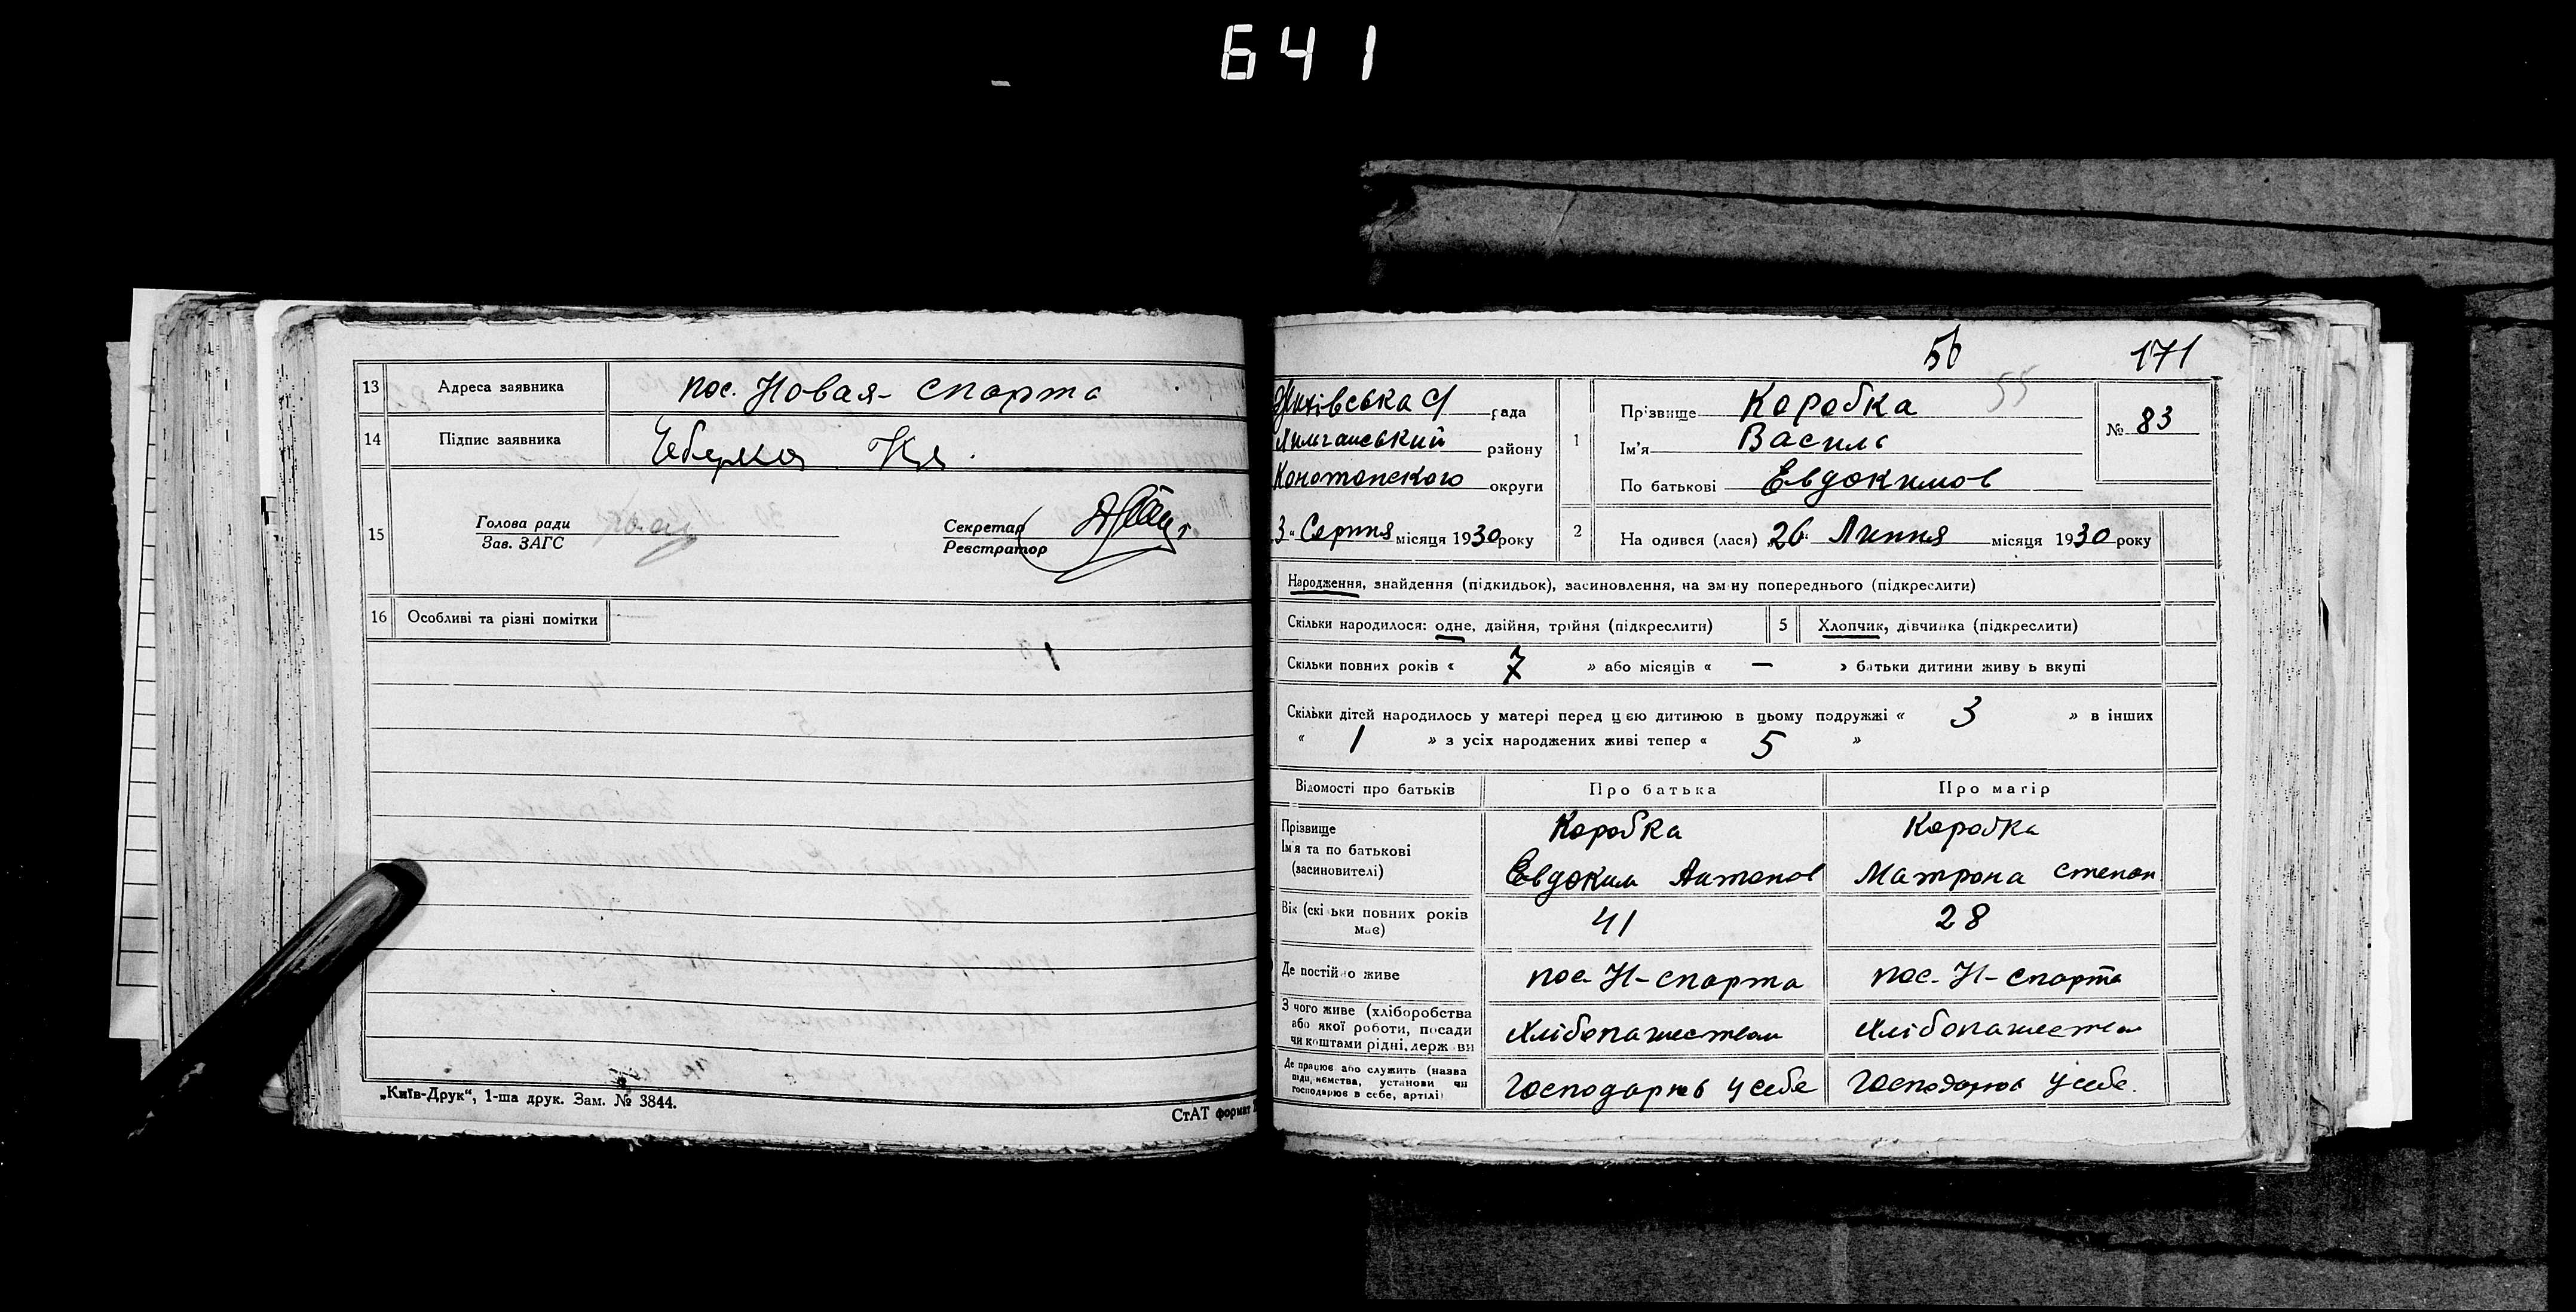 641
13 Адреса заявника пос. Новая- спарта
14 Підпис заявника
15 Голова ради Зав. ЗАГС Секретар Реєстратор
16 Особливі та різні помітки
„Київ-Друк“, 1-ша друк. Зам. № 3844.
СтАТ формат
56 171
55
рада
району
Конотопского округи
3 „ Серпня місяця 1930 року
1 Прізвище Коробка
Ім'я Василь
По батькові Евдокимов
№ 83
2 На одився (лася) „26“ Липня місяця 1930 року
Народження, знайдення (підкидьок), засиновлення, на зм ну попереднього (підкреслити)
Скільки народилося: одне, двійня, трійня (підкреслити) 5 Хлопчик, дівчинка (підкреслити)
Скільки повних років « 7 » або місяців « — » батьки дитини живу ь вкупі
Скільки дітей народилось у матері перед цією дитиною в цьому подружжі « 3 » в інших
« 1 » з усіх народжених живі тепер « 5 »
Відомості про батьків Про батька Про матір
Прізвище Коробка Коробка
Ім'я та по батькові
(засиновителі) Евдоким Антонов Матрона степан
Вік (скі ьки повних років має) 41 28
Де постійно живе пос. Н-спарта пос. Н-спарта
З чого живе (хліборобства або якої роботи, посади чи коштами рідні, держ ви Хлібопашеством Хлібопашеством
Де працює або служить (назва підп, иємства, установи чи господарює в себе, артілі) Господарюв у себе Господарюв у себе.